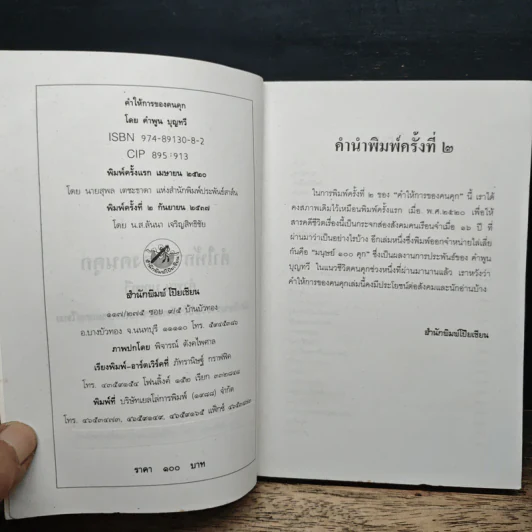 คำให้การของคนคุก
โดย คำพูน บุญทวี
ISBN 974-89130-8-2
CIP 895.913
พิมพ์ครั้งแรก เมษายน ๒๕๒๐
โดย นายสุพล เตชะธาดา แห่งสำนักพิมพ์ประพันธ์สาส์น
พิมพ์ครั้งที่ ๒ กันยายน ๒๕๓๗
โดย น.ส.ลันนา เจริญสิทธิชัย
สำนักพิมพ์ โป๊ยเซียน
๑๑๗/๒๗๕ ซอย ๙/๕ บ้านบัวทอง
อ.บางบัวทอง จ.นนทบุรี ๑๑๑๑๐ โทร.
ภาพปกโดย พิจารณ์ ตังคไพศาล
เรียงพิมพ์-อาร์ตเวิร์คที่ ภัทรานิษฐ์ กราฟฟิค
โทร. ๔๓๕๙๑๕๔ โฟนลิ้งค์ ๑๕๒ เรียก
พิมพ์ที่ บริษัทเยลโล่การพิมพ์ (๑๙๘๘) จำกัด
โทร. ๔๖๕๓๔๗๓, ๔๖๕๙๑๔๙, ๔๖๕๙๑๖๕ แฟ็กซ์
ราคา ๑๐๐ บาท
คำนำพิมพ์ครั้งที่ ๒
ในการพิมพ์ครั้งที่ ๒ ของ "คำให้การของคนคุก" นี้ เราได้
คงสภาพเดิมไว้เหมือนพิมพ์ครั้งแรก เมื่อ พ.ศ.๒๕๒๐ เพื่อให้
สารคดีชีวิตเรื่องนี้เป็นกระจกส่องสังคมคนเรือนจำเมื่อ ๑๖ ปี ที่
ผ่านมาว่าเป็นอย่างไรบ้าง อีกเล่มหนึ่งซึ่งพิมพ์ออกจำหน่ายไล่เลี่ย
กันคือ "มนุษย์ ๑๐๐ คุก" ซึ่งเป็นผลงานการประพันธ์ของ คำพูน
บุญทวี ในแนวชีวิตคนคุกช่วงหนึ่งที่ผ่านมานานแล้ว เราหวังว่า
คำให้การของคนคุกเล่มนี้คงมีประโยชน์ต่อสังคมและนักอ่านบ้าง
สำนักพิมพ์โป๊ยเซียน